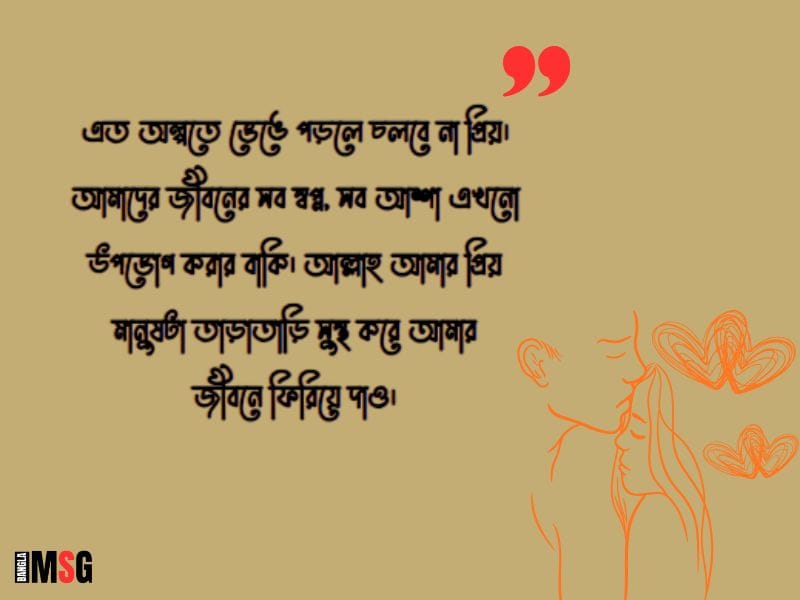 এত অল্পতে ভেঙে পড়লে চলবে না প্রিয়।
আমাদের জীবনের সব স্বপ্ন, সব আশা এখনো
উপভোগ করার বাকি। আল্লাহ আমার প্রিয়
মানুষটা তাড়াতাড়ি সুস্থ করে আমার
জীবনে ফিরিয়ে দাও।
BANGLA MSG